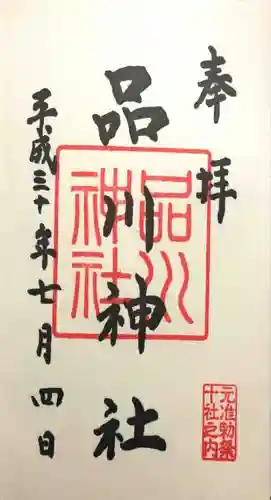 奉拝
品川神社
平成三十年七月四日
品川神社
元准勅祭十社之内